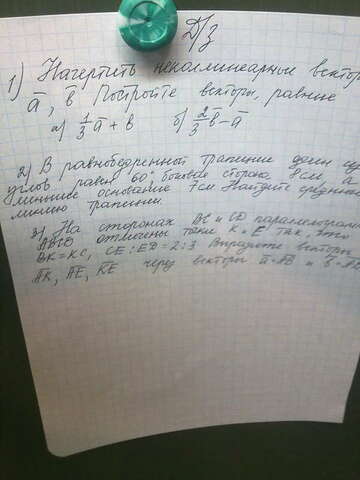 Д/З
1) Начертить неколлинеарные векторы
a̅, b̅ Постройте векторы, равные
а) 1/3 a̅ + b б) 2/3 b̅ - a̅
2) В равнобедренной трапеции один
углов равен 60° боковая сторона 8см а
меньшее основание 7см Найдите среднюю
линию трапеции.
3) На сторонах BC и CD параллелограмма
ABCD отмечены точки K и E так, что
BK = KC, CE:ED = 2:3 Выразите векторы
A̅K̅, A̅E̅, K̅E̅ через векторы a̅ = A̅B̅ и b̅ =